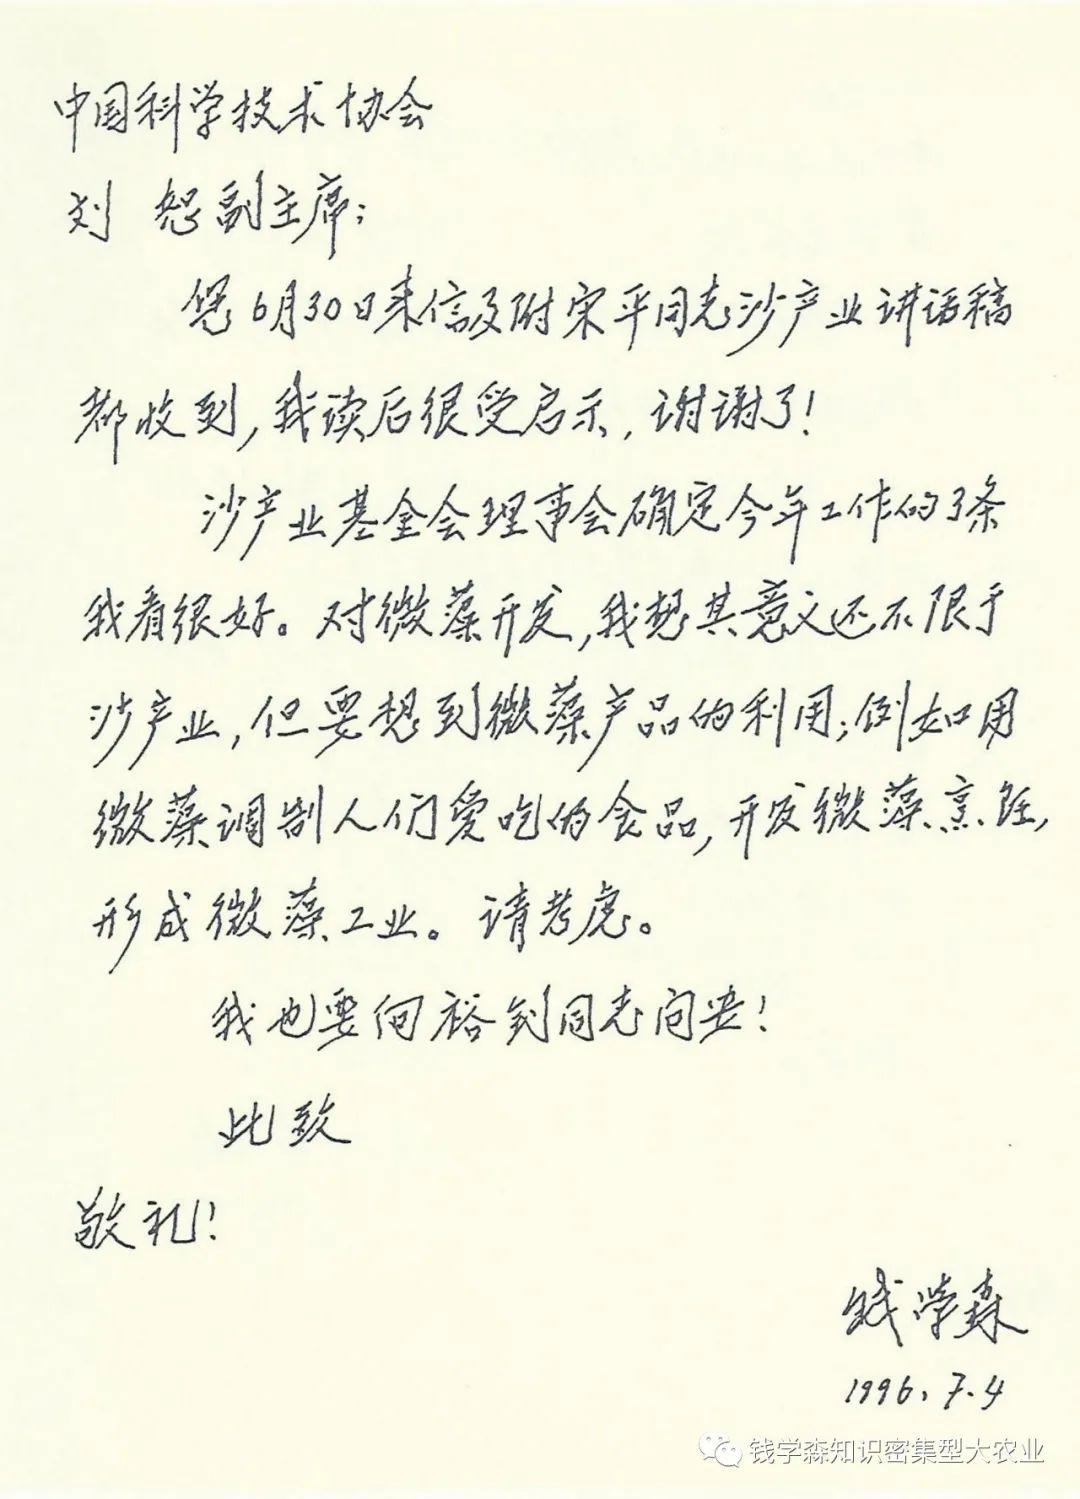 中国科学技术协会
刘 恕副主席：
您6月30日来信及附宋平同志沙产业讲话稿
都收到，我读后很受启示，谢谢了！
沙产业基金会理事会确定今年工作的3条
我看很好。对微藻开发，我想其意义还不限于
沙产业，但要想到微藻产品的利用；例如用
微藻调制人们爱吃的食品，开发微藻烹饪，
形成微藻工业。请考虑。
我也要向裕钊同志问安！
此致
敬礼！
钱学森
1996.7.4
钱学森知识密集型大农业